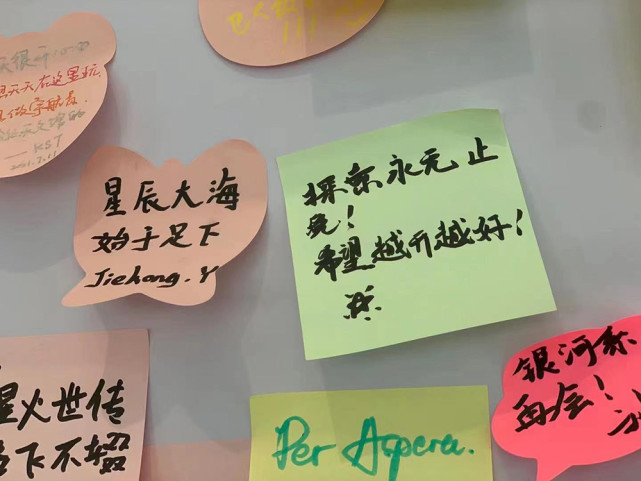 天很开
天天在这里玩
做宇航员
KST
星辰大海
始于足下
Jiehang.Y
探索永无止
境！
希望越开越好！
星火世传
下不辍
Per Aspera.
银河系
再会！